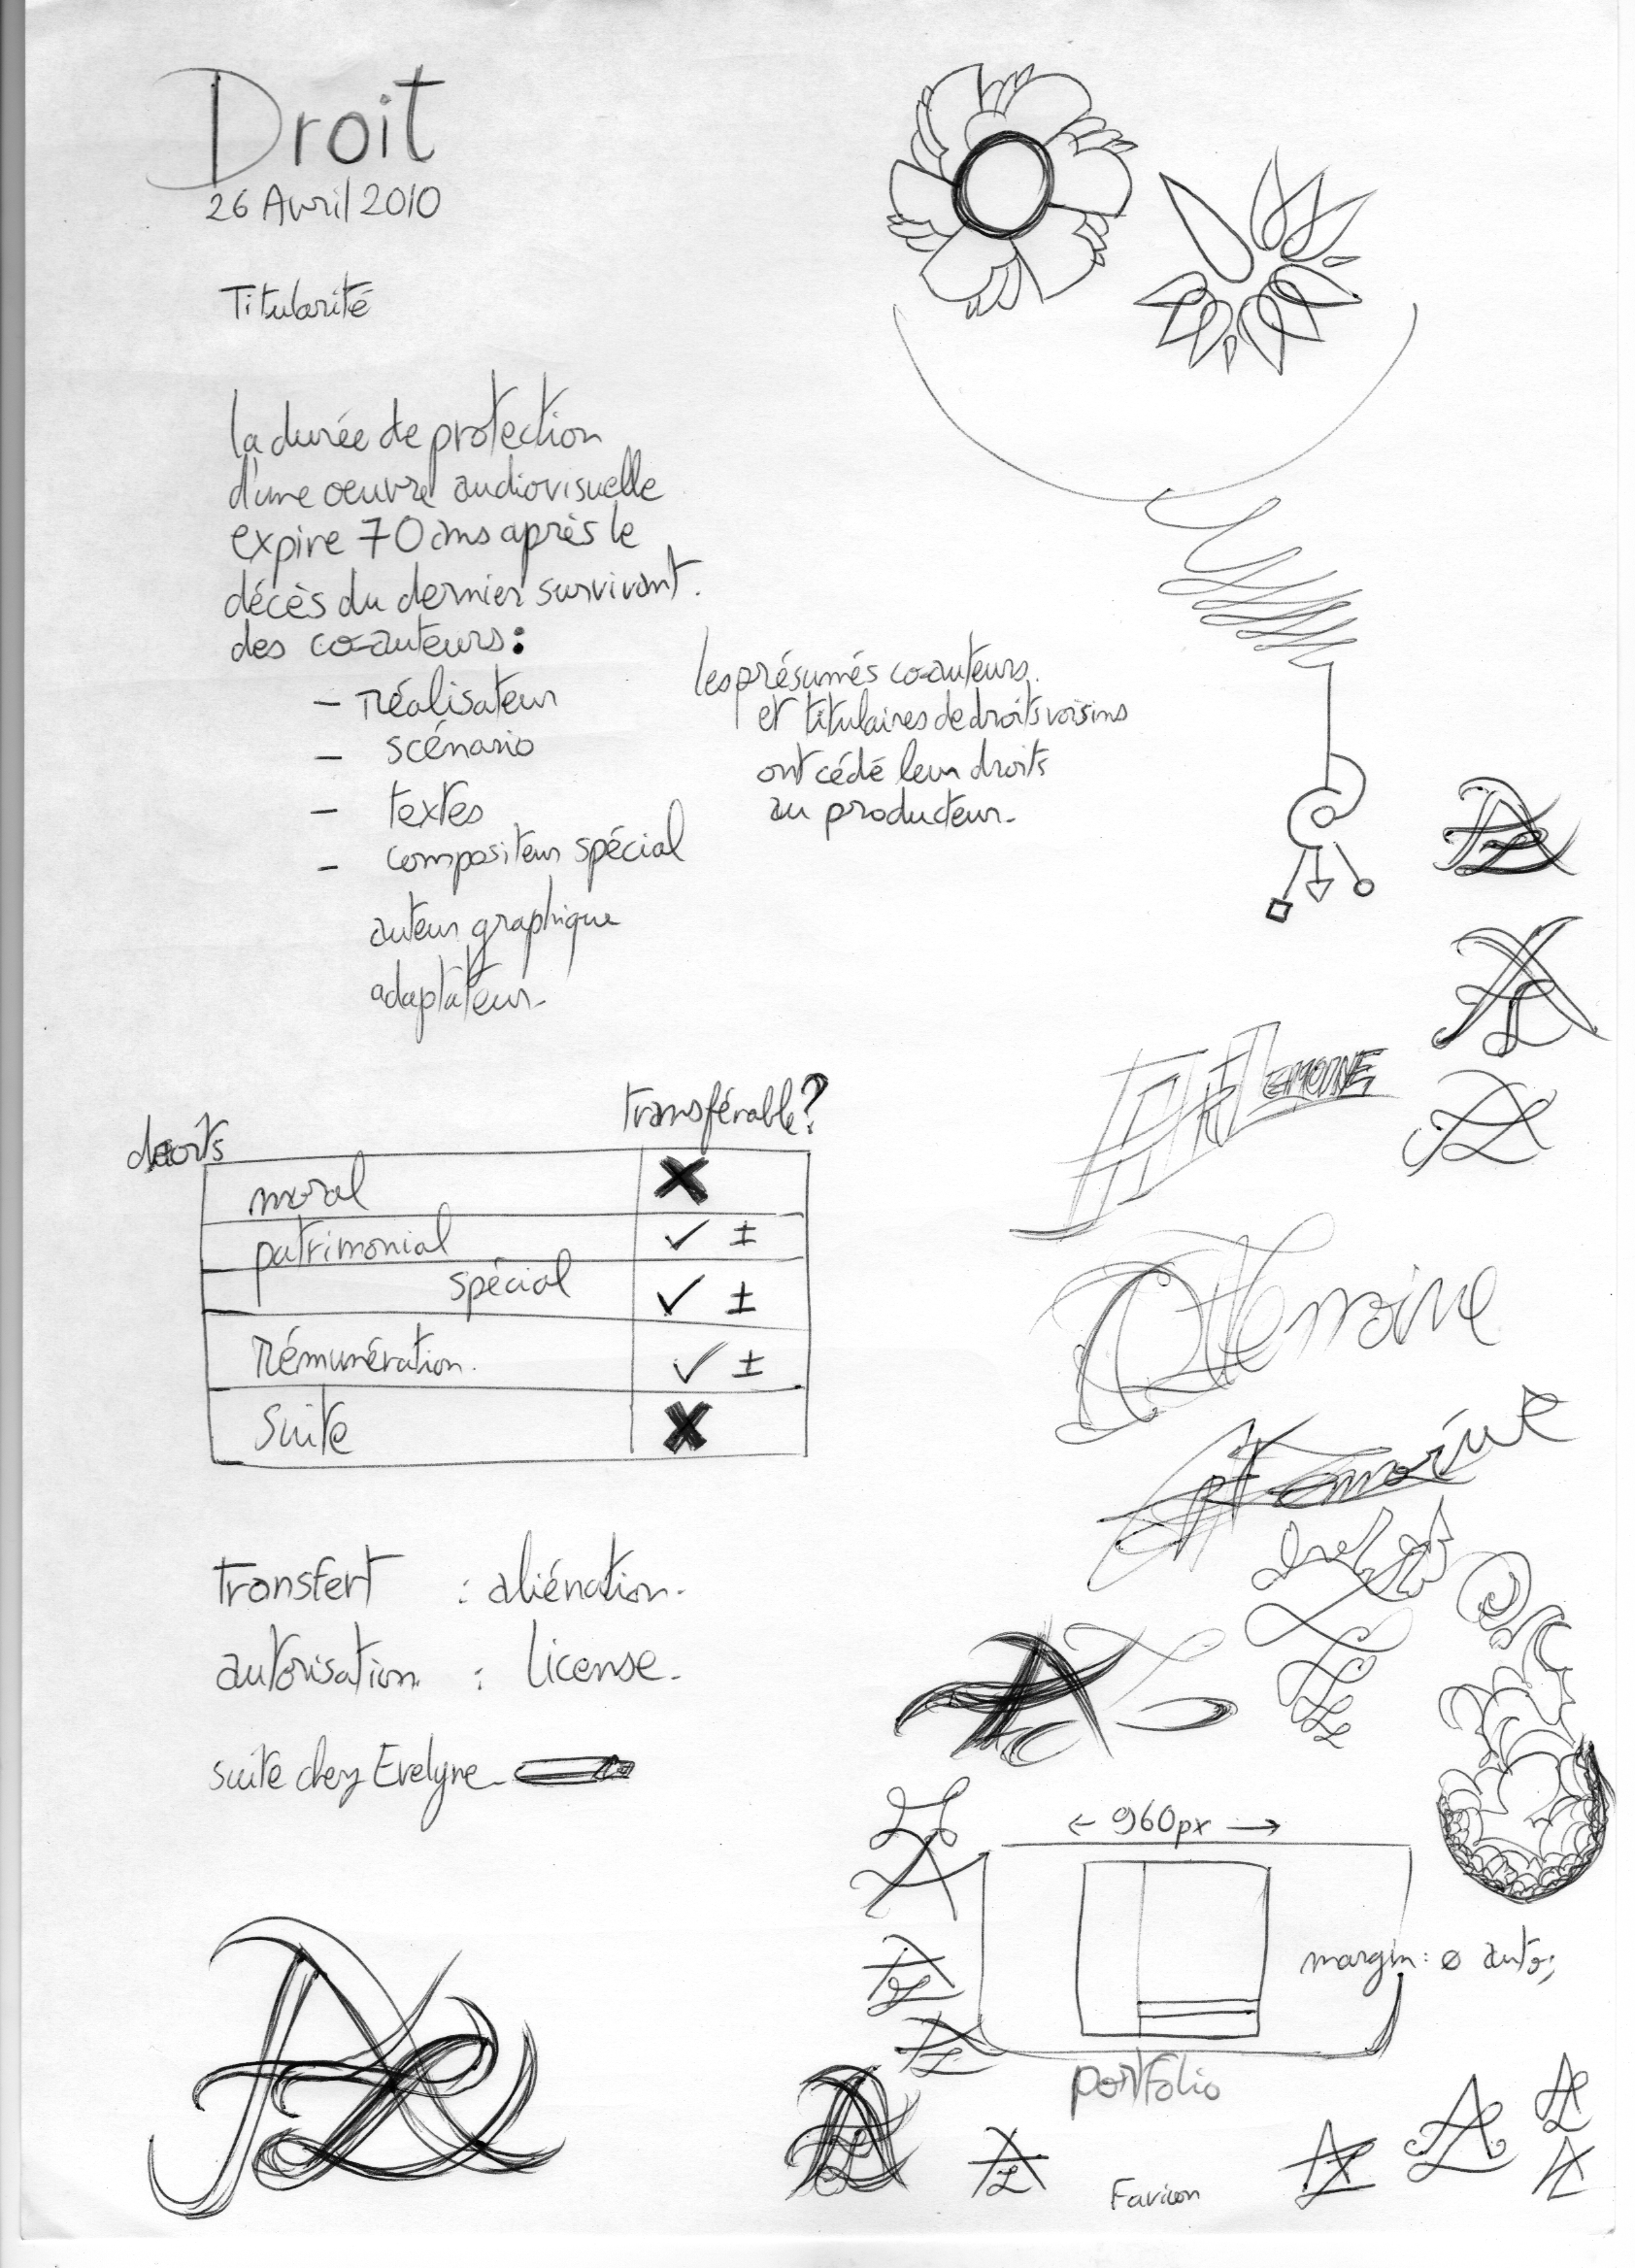 Droit
26 Avril 2010
Titularité
la durée de protection
d'une oeuvre audiovisuelle
expire 70 ans après le
décès du dernier survivant.
des co-auteurs :
- réalisateur
- scénario
- textes
- compositeur spécial
auteur graphique
adaptateur.
les présumés co-auteurs.
et titulaires de droits voisins
ont cédé leur droits
au producteur.
droits
transférable?
moral ✗
patrimonial ✓ ±
spécial ✓ ±
rémunération. ✓ ±
suite ✗
transfert : aliénation.
autorisation. : license.
suite chez Evelyne
LEMOINE
Lemoine
Lemoine
AL
← 960px →
margin: 0 auto;
portfolio
Favicon